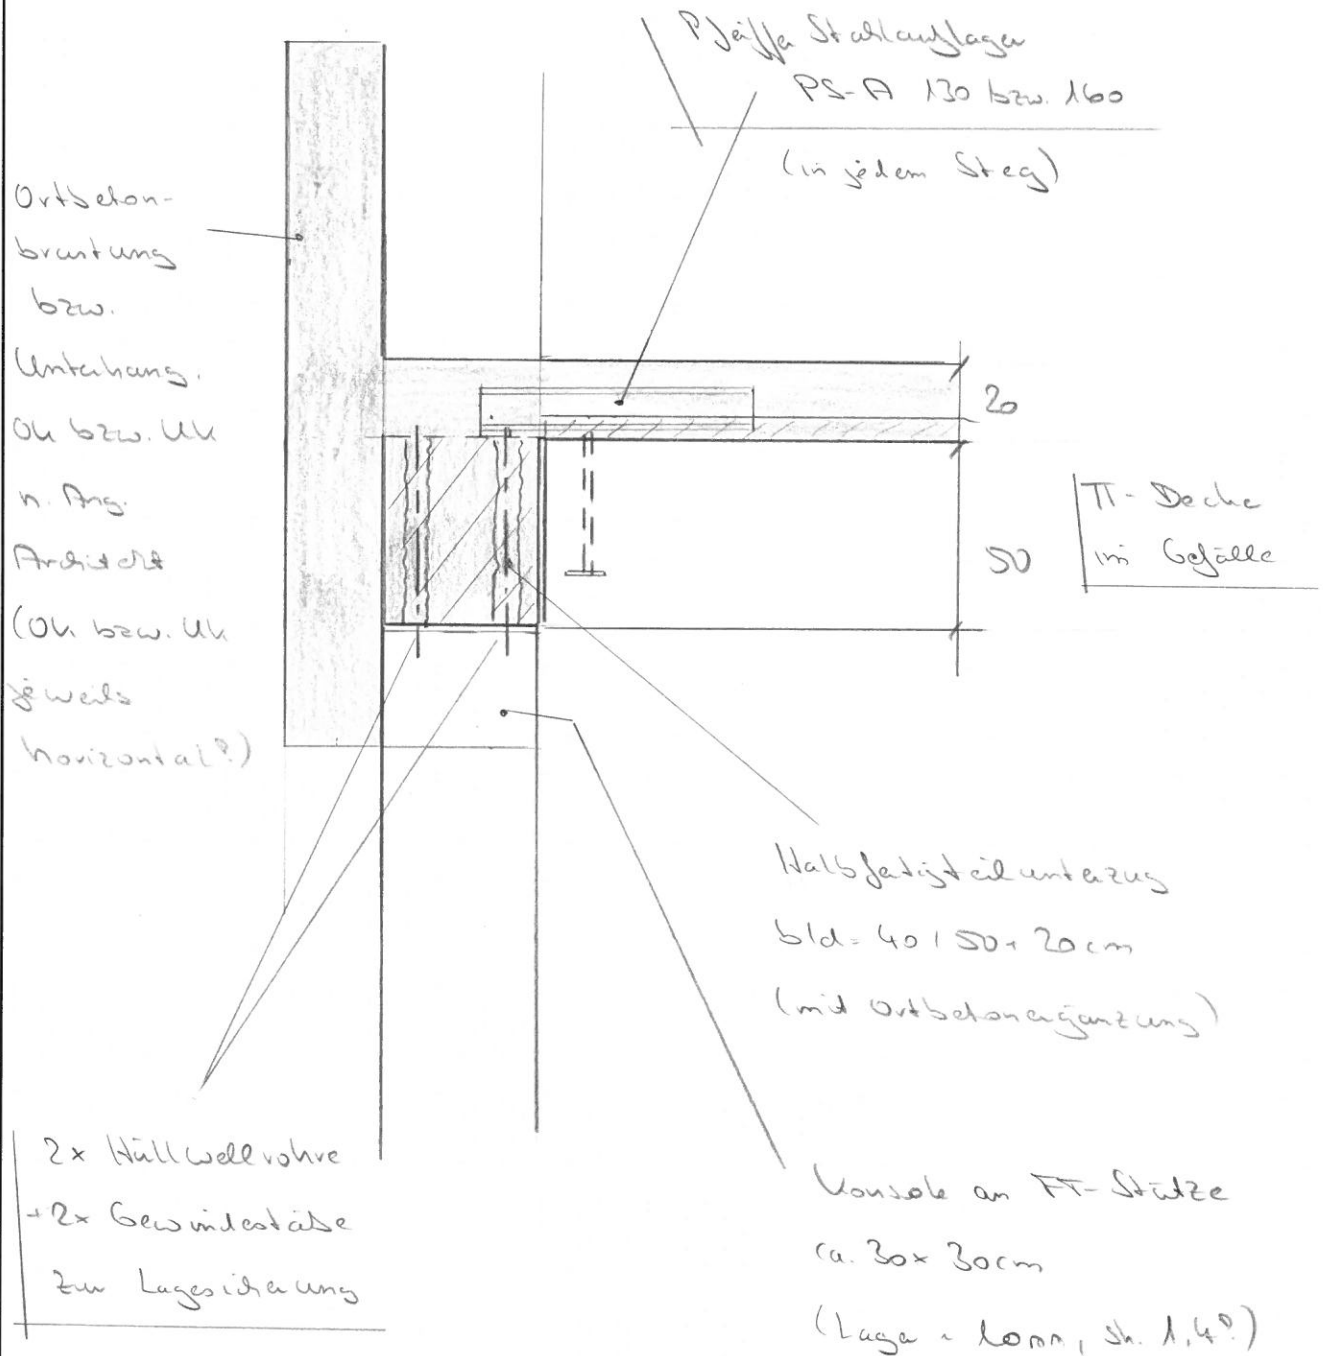 Pfeiffer Stahlauflager
PS-A 130 bzw. 160
(in jedem Steg)
Ortbeton-
brüstung
bzw.
Unterhang.
OK bzw. UK
n. Ang.
Architekt
(OK bzw. UK
jeweils
horizontal?)
20
50
π-Decke
im Gefälle
Halbfertigteilunterzug
b/d= 40/50+20cm
(mit Ortbetonergänzung)
2x Hüllwellrohre
+2x Gewindestäbe
zur Lagesicherung
Konsole an FT-Stütze
ca. 30x30cm
(Lager